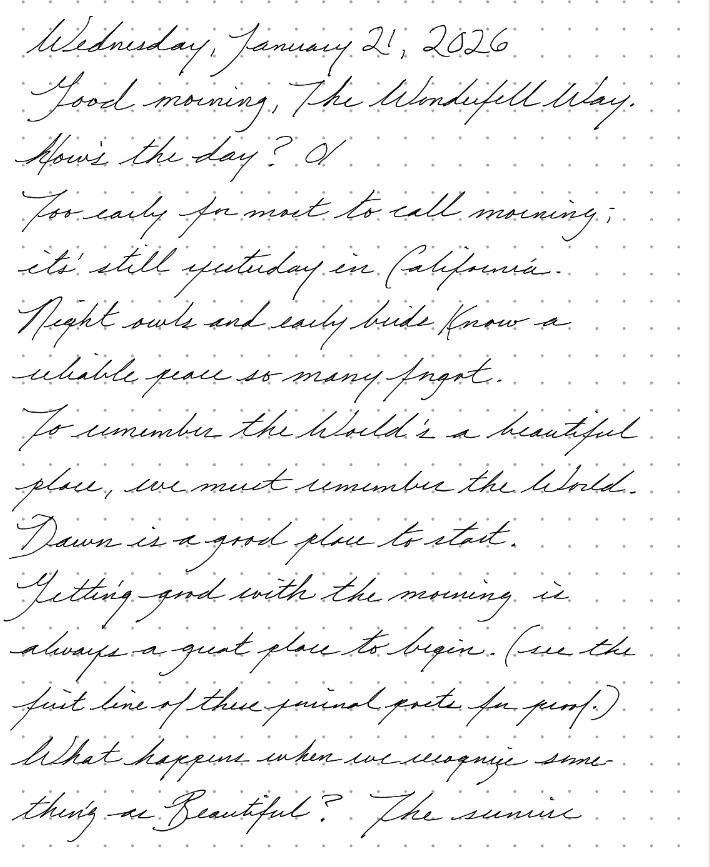 Wednesday, January 21, 2026
Good morning, The Wonderfell Way.
How's the day?
Too early for most to call morning;
it's still yesterday in California.
Night owls and early birds know a
reliable peace so many forgot.
To remember the World's a beautiful
place, we must remember the World.
Dawn is a good place to start.
Getting good with the morning is
always a great place to begin. (see the
first line of these journal posts for proof.)
What happens when we recognize some-
thing as Beautiful? The sunrise